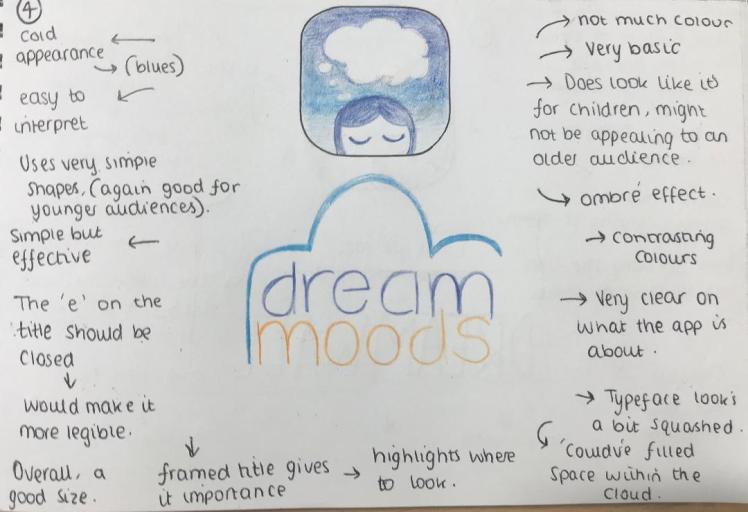 4
cold
appearance
(blues)
easy to
interpret
Uses very simple
shapes, (again good for
younger audiences).
Simple but
effective
The 'e' on the
title should be
closed
would make it
more legible.
Overall, a
good size.
framed title gives
it importance
highlights where
to look.
dream
moods
not much colour
Very basic
Does look like it's
for children, might
not be appealing to an
older audience.
ombré effect.
contrasting
colours
Very clear on
what the app is
about.
Typeface look's
a bit squashed.
'Could've filled
space within the
cloud.